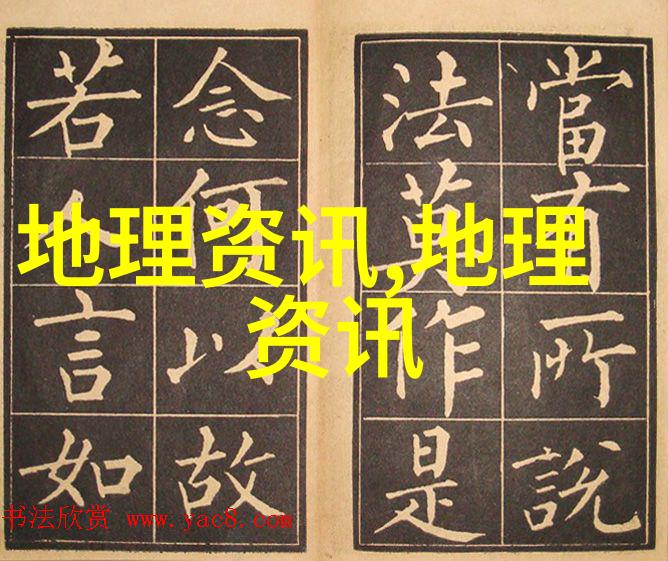 當有所說
法莫作是
念何以故
若人言如
地理资讯,地理
资讯
书法欣赏 www.yac8.com